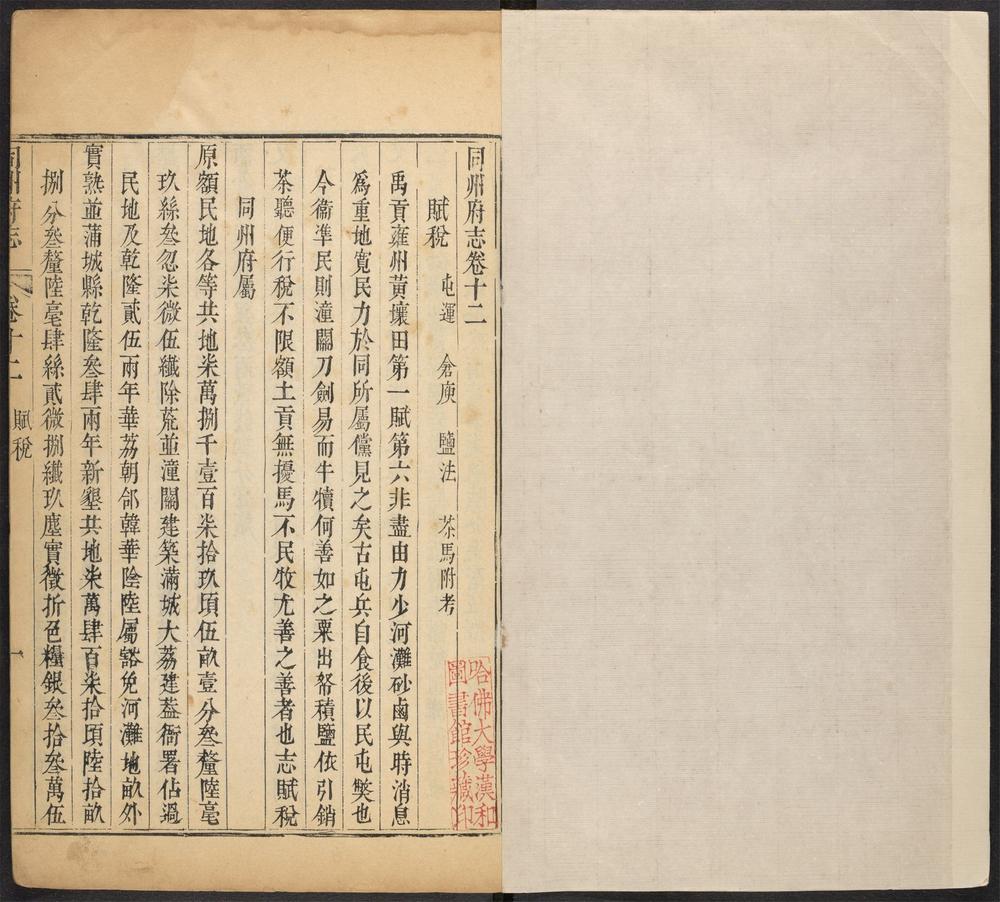 同州府志卷十二
賦稅 屯運 倉庾 鹽法 茶馬附考
禹貢雍州黃壤田第一賦第六非盡由力少河灘砂鹵與時消息
爲重地寬民力於同所屬儻見之矣古屯兵自食後以民屯獘也
今衞準民則潼關刀劍易而牛犢何善如之粟出帑積鹽依引銷
茶聽便行稅不限額土貢無擾馬不民牧尤善之善者也志賦稅
同州府屬
原額民地各等共地柒萬捌千壹百柒拾玖頃伍畝壹分叁釐陸毫
玖絲叁忽柒微伍纖除荒並潼關建築滿城大荔建葢衙署佔過
民地及乾隆貳伍兩年華荔朝郃韓華陰陸屬豁免河灘地畝外
實熟並蒲城縣乾隆叁肆兩年新墾共地柒萬肆百柒拾頃陸拾畝
捌分叁釐陸毫肆絲貳微捌纖玖塵實徵折色糧銀叁拾叁萬伍
同州府志 卷十二 賦稅 一
哈佛大學漢和
圖書館珍藏印